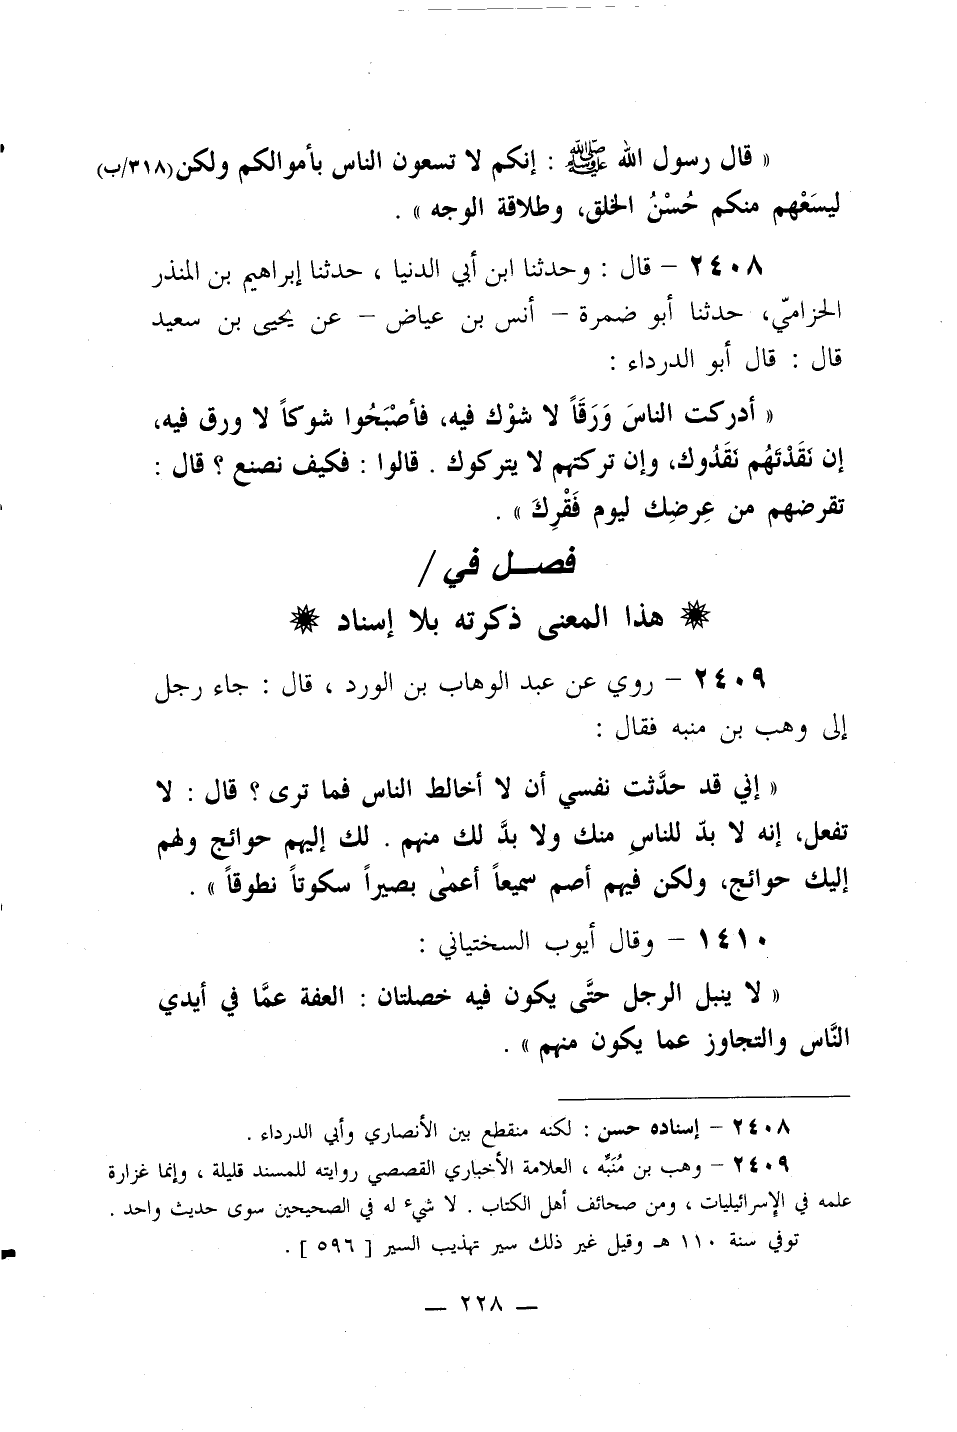 « قال رسول الله ﷺ : إنكم لا تسعون الناس بأموالكم ولكن (٣١٨/ب)
ليسَعْهم منكم حُسْنُ الخلق، وطلاقة الوجه » .
٢٤٠٨ – قال : وحدثنا ابن أبي الدنيا ، حدثنا إبراهيم بن المنذر
الحزاميّ، حدثنا أبو ضمرة – أنس بن عياض – عن يحيى بن سعيد
قال : قال أبو الدرداء :
« أدركت الناسَ وَرَقَاً لا شوْك فيه، فأصْبَحُوا شوكاً لا ورق فيه،
إن نَقَدْتَهُم نَقَدُوك، وإن تركتهم لا يتركوك . قالوا : فكيف نصنع ؟ قال :
تقرضهم من عِرضِك ليوم فَقْرِكَ » .
فصـــل في /
هذا المعنى ذكرته بلا إسناد
٢٤٠٩ – روي عن عبد الوهاب بن الورد ، قال : جاء رجل
إلى وهب بن منبه فقال :
« إني قد حدَّثت نفسي أن لا أخالط الناس فما ترى ؟ قال : لا
تفعل، إنه لا بدّ للناسِ منك ولا بدَّ لك منهم . لك إليهم حوائج ولهم
إليك حوائج، ولكن فيهم أصم سميعاً أعمىٰ بصيراً سكوتاً نطوقاً » .
١٤١٠ – وقال أيوب السختياني :
« لا ينبل الرجل حتَّى يكون فيه خصلتان : العفة عمَّا في أيدي
النَّاس والتجاوز عما يكون منهم » .
٢٤٠٨ – إسناده حسن : لكنه منقطع بين الأنصاري وأبي الدرداء .
٢٤٠٩ – وهب بن مُنَبِّه ، العلامة الأخباري القصصي روايته للمسند قليلة ، وإنما غزارة
علمه في الإسرائيليات ، ومن صحائف أهل الكتاب . لا شيء له في الصحيحين سوى حديث واحد .
توفي سنة ١١٠ هـ وقيل غير ذلك سير تهذيب السير [ ٥٩٦ ] .
— ٢٢٨ —